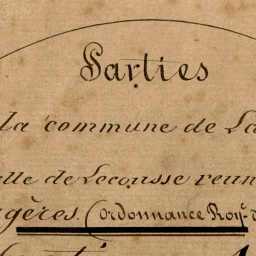 Parties
la commune de La
lle de Lecousse reun
gères. (ordonnance Roy.